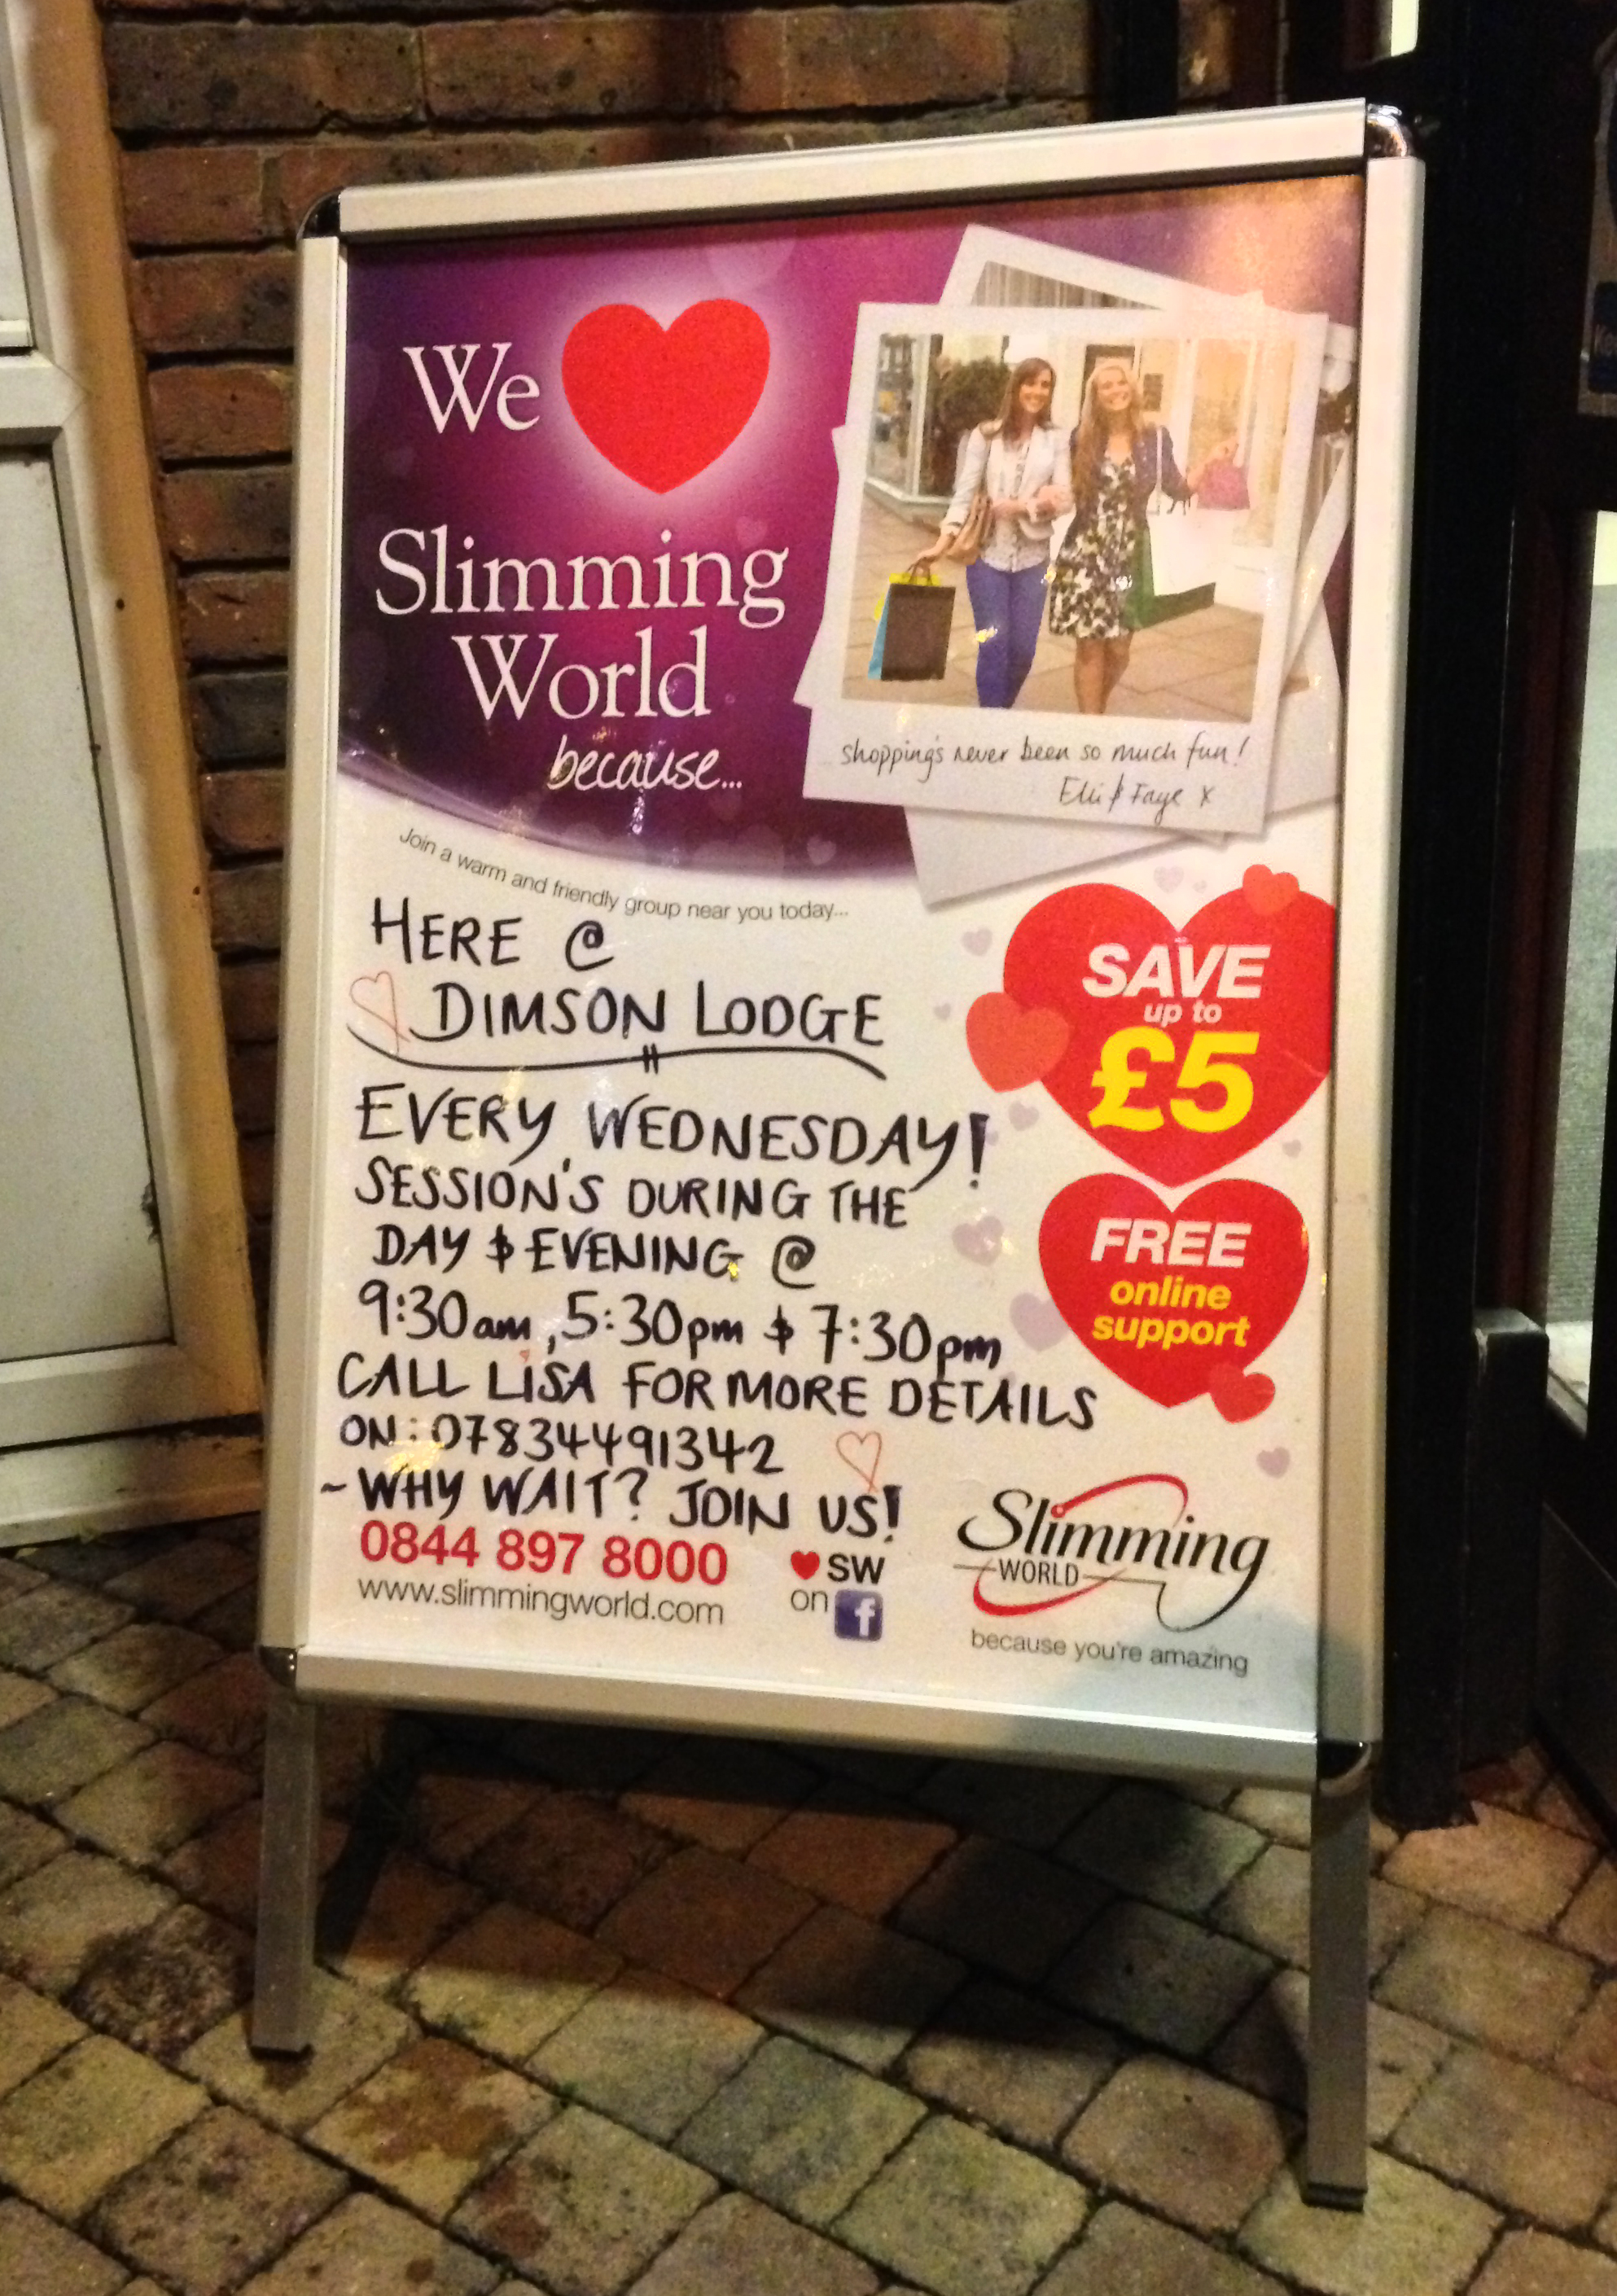 We ❤
Slimming
World
because...
shopping's never been so much fun!
Elli & Faye x
Join a warm and friendly group near you today...
HERE @
DIMSON LODGE
EVERY WEDNESDAY!
SESSION'S DURING THE
DAY & EVENING @
9:30am, 5:30pm & 7:30pm
CALL LiSA FOR MORE DETAILS
ON: 07834491342
~ WHY WAIT? JOIN US!
SAVE
up to
£5
FREE
online
support
0844 897 8000
www.slimmingworld.com
❤ SW
on f
Slimming
WORLD
because you're amazing